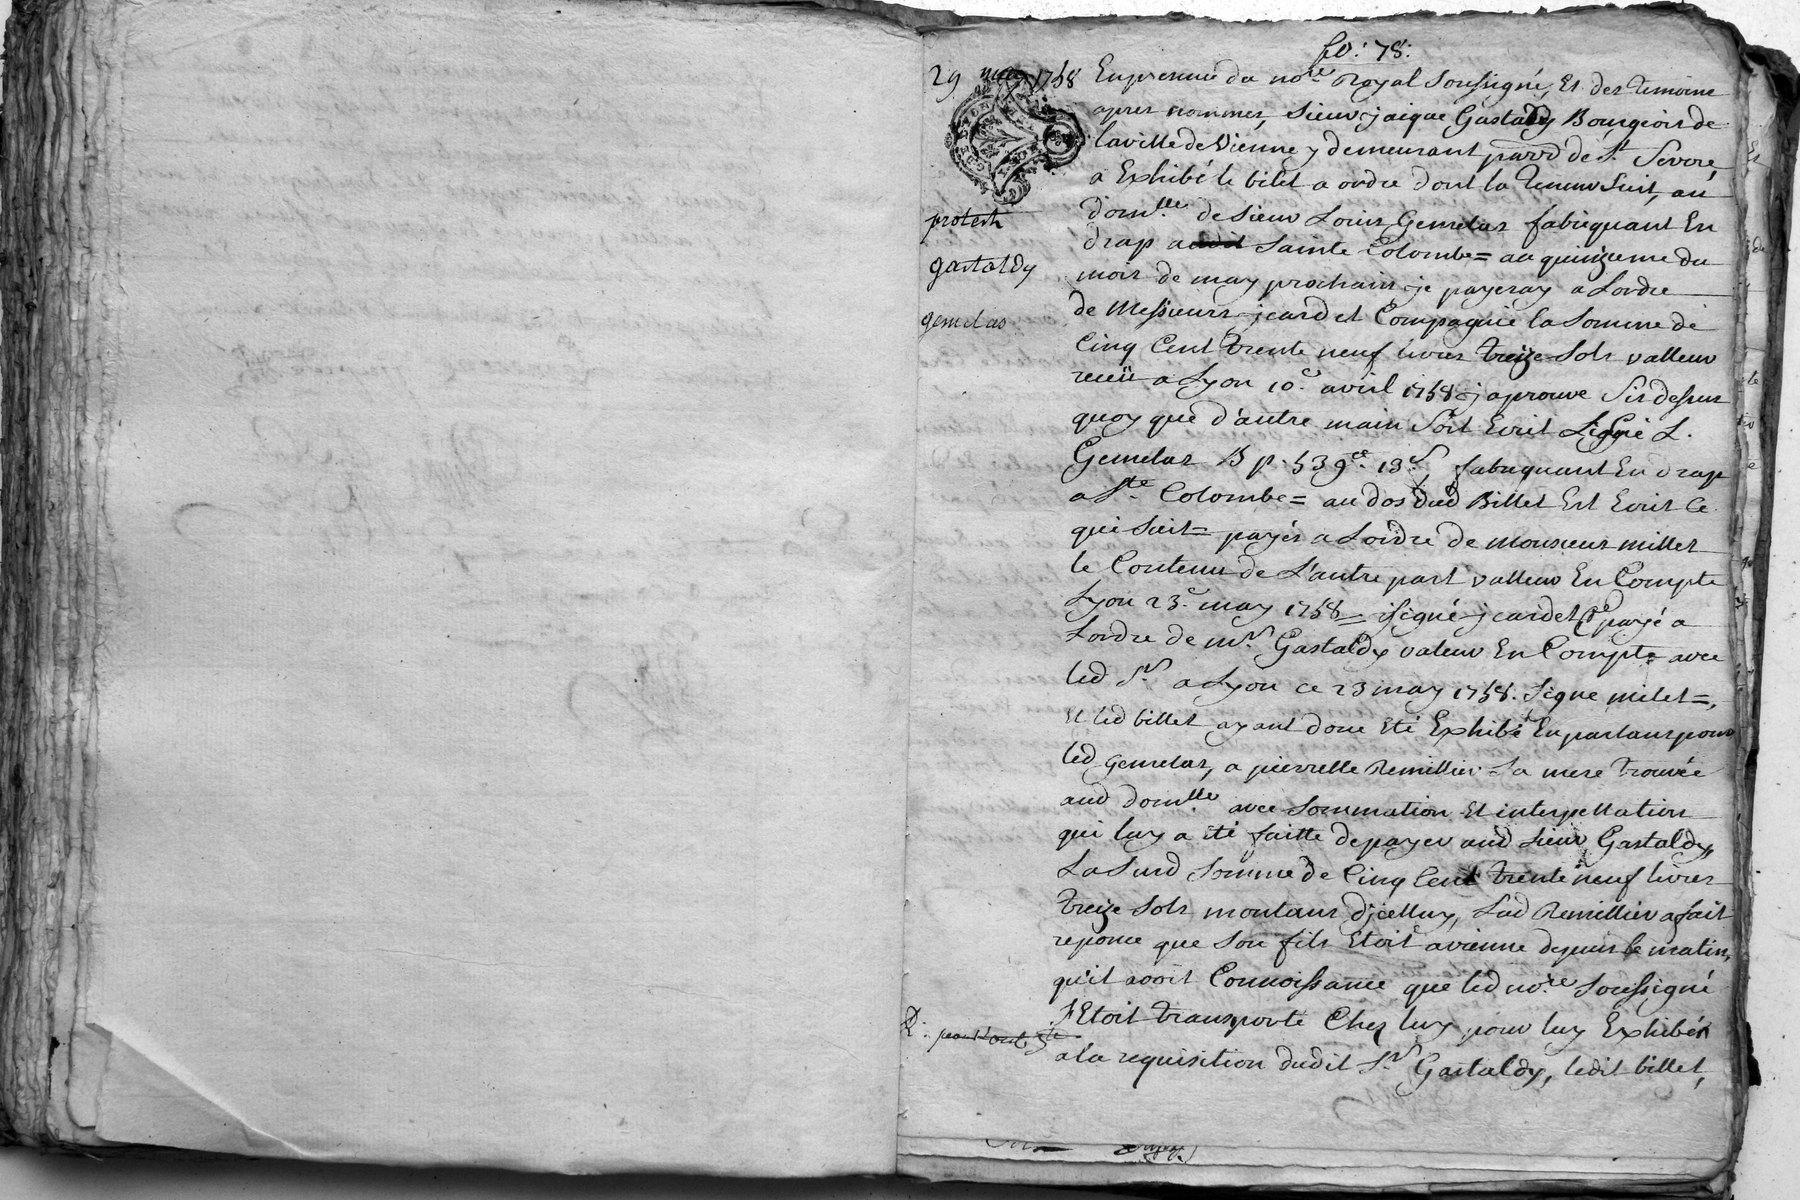 fo: 78:
29 may 1758
Enpresence du no.re Royal soussigné, Et des temoins
apres nommes, sieur jaique Gastaldy Bourgeois de
laville de Vienne y demeurant parr.d de s.t Severe
a Exhibé le bilet a ordre dont la teneur suit, au
dom.lle de sieur Louis Gemelas fabriquant En
drap a sainte Colombe = au quinzieme du
mois de may prochain je payeray a Lordre
de Messieurs jcard et Compagnie la somme de
Cinq Cent trente neuf livres treize sols valleur
receü a Lyon 10.e avril 1758 j aprouve sis dessus
quoy que d'autre main soit Ecrit signé L.
Gemelas B p. 539.ll 13.s fabriquant En drap
a s.te Colombe = au dos dud Billet Est Ecrit Ce
qui suit = payés a Lordre de monsieur millet
le Contenu de L'autre part valleur En Compte
Lyon 23.e may 1758 = signé jcard et C.e payé a
Lordre de m.r Gastaldy valeur En Compte avec
led s.r a Lyon ce 23 may 1758. signe milet =,
Et led billet ayant donc Eté Exhibé En parlant pour
led Gemelas, a pierrette Remillier sa mere trouvée
aud dom.lle avec sommation Et interpellation
qui luy a Eté faitte de payer aud sieur Gastaldy,
La susd somme de Cinq Cent trente neuf livres
treize sols montans d'jcelluy, Lad Remillier a fait
reponce que son fils Etoit a vienne depuis le matin,
qu'il avoit Connoissance que led no.re soussigné
s'Etoit transporté Chez luy pour luy Exhiber
a la requisition dudit s.r Gastaldy, ledit billet,
protest
gastaldy
gemelas